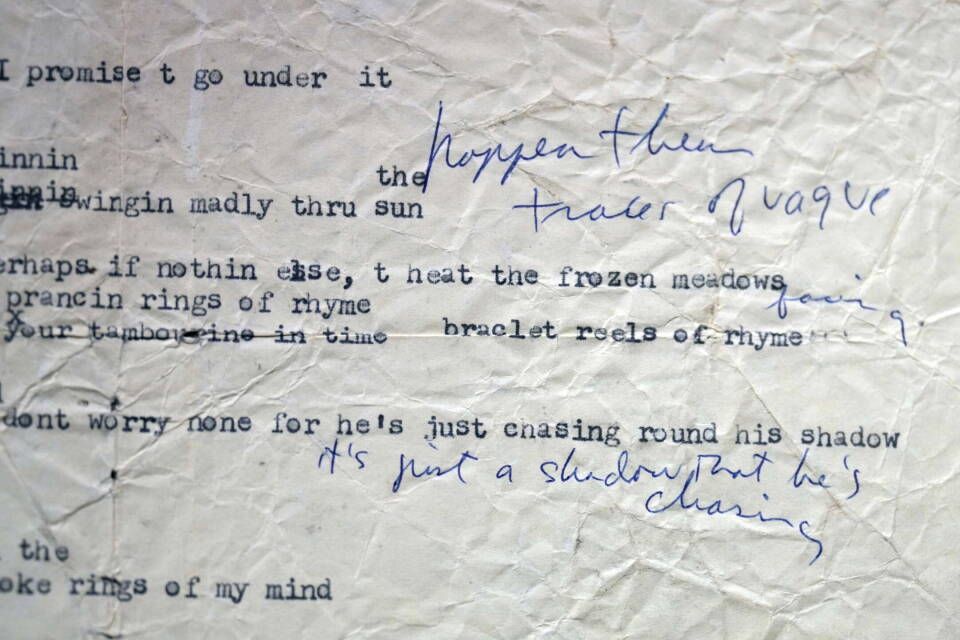 I promise t go under it
happen then
innin
the
swingin madly thru sun
traces of vague
erhaps if nothin else, t heat the frozen meadows
prancin rings of rhyme
your tambourine in time braclet reels of rhyme
dont worry none for he's just chasing round his shadow
it's just a shadow that he's
chasing
the
oke rings of my mind